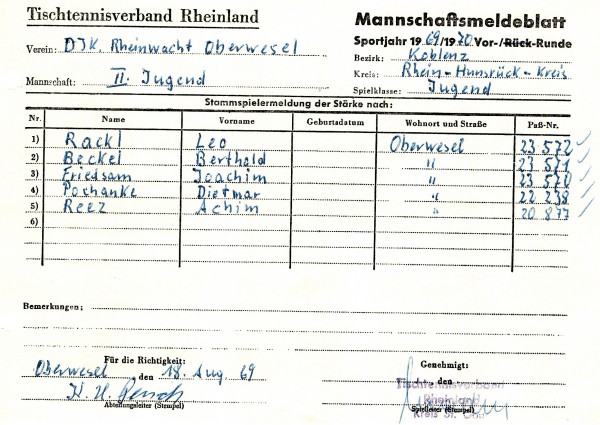 Tischtennisverband Rheinland
Mannschaftsmeldeblatt
Sportjahr 1969/1970 Vor-/Rück-Runde
Verein: DJK. Rheinwacht Oberwesel
Bezirk: Koblenz
Kreis: Rhein-Hunsrück-Kreis
Mannschaft: II. Jugend
Spielklasse: Jugend
Stammspielermeldung der Stärke nach:
Nr. Name Vorname Geburtsdatum Wohnort und Straße Paß-Nr.
1) Rackl Leo Oberwesel 23 572
2) Beckel Berthold " 23 571
3) Friedsam Joachim " 23 570
4) Poschanke Dietmar " 22 238
5) Reez Achim " 20 877
6)
Bemerkungen:
Für die Richtigkeit:
Genehmigt:
Oberwesel den 18. Aug. 69
den
Tischtennisverband
Rheinland
Abteilungsleiter (Stempel)
Spielleiter (Stempel)